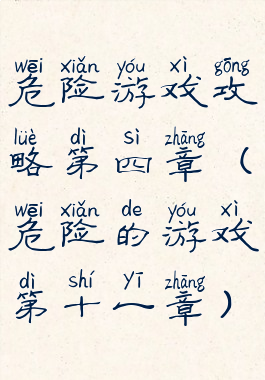 wēi xiǎn yóu xì gōng
危险游戏攻
lüè dì sì zhāng
略第四章（
wēi xiǎn de yóu xì
危险的游戏
dì shí yī zhāng
第十一章）